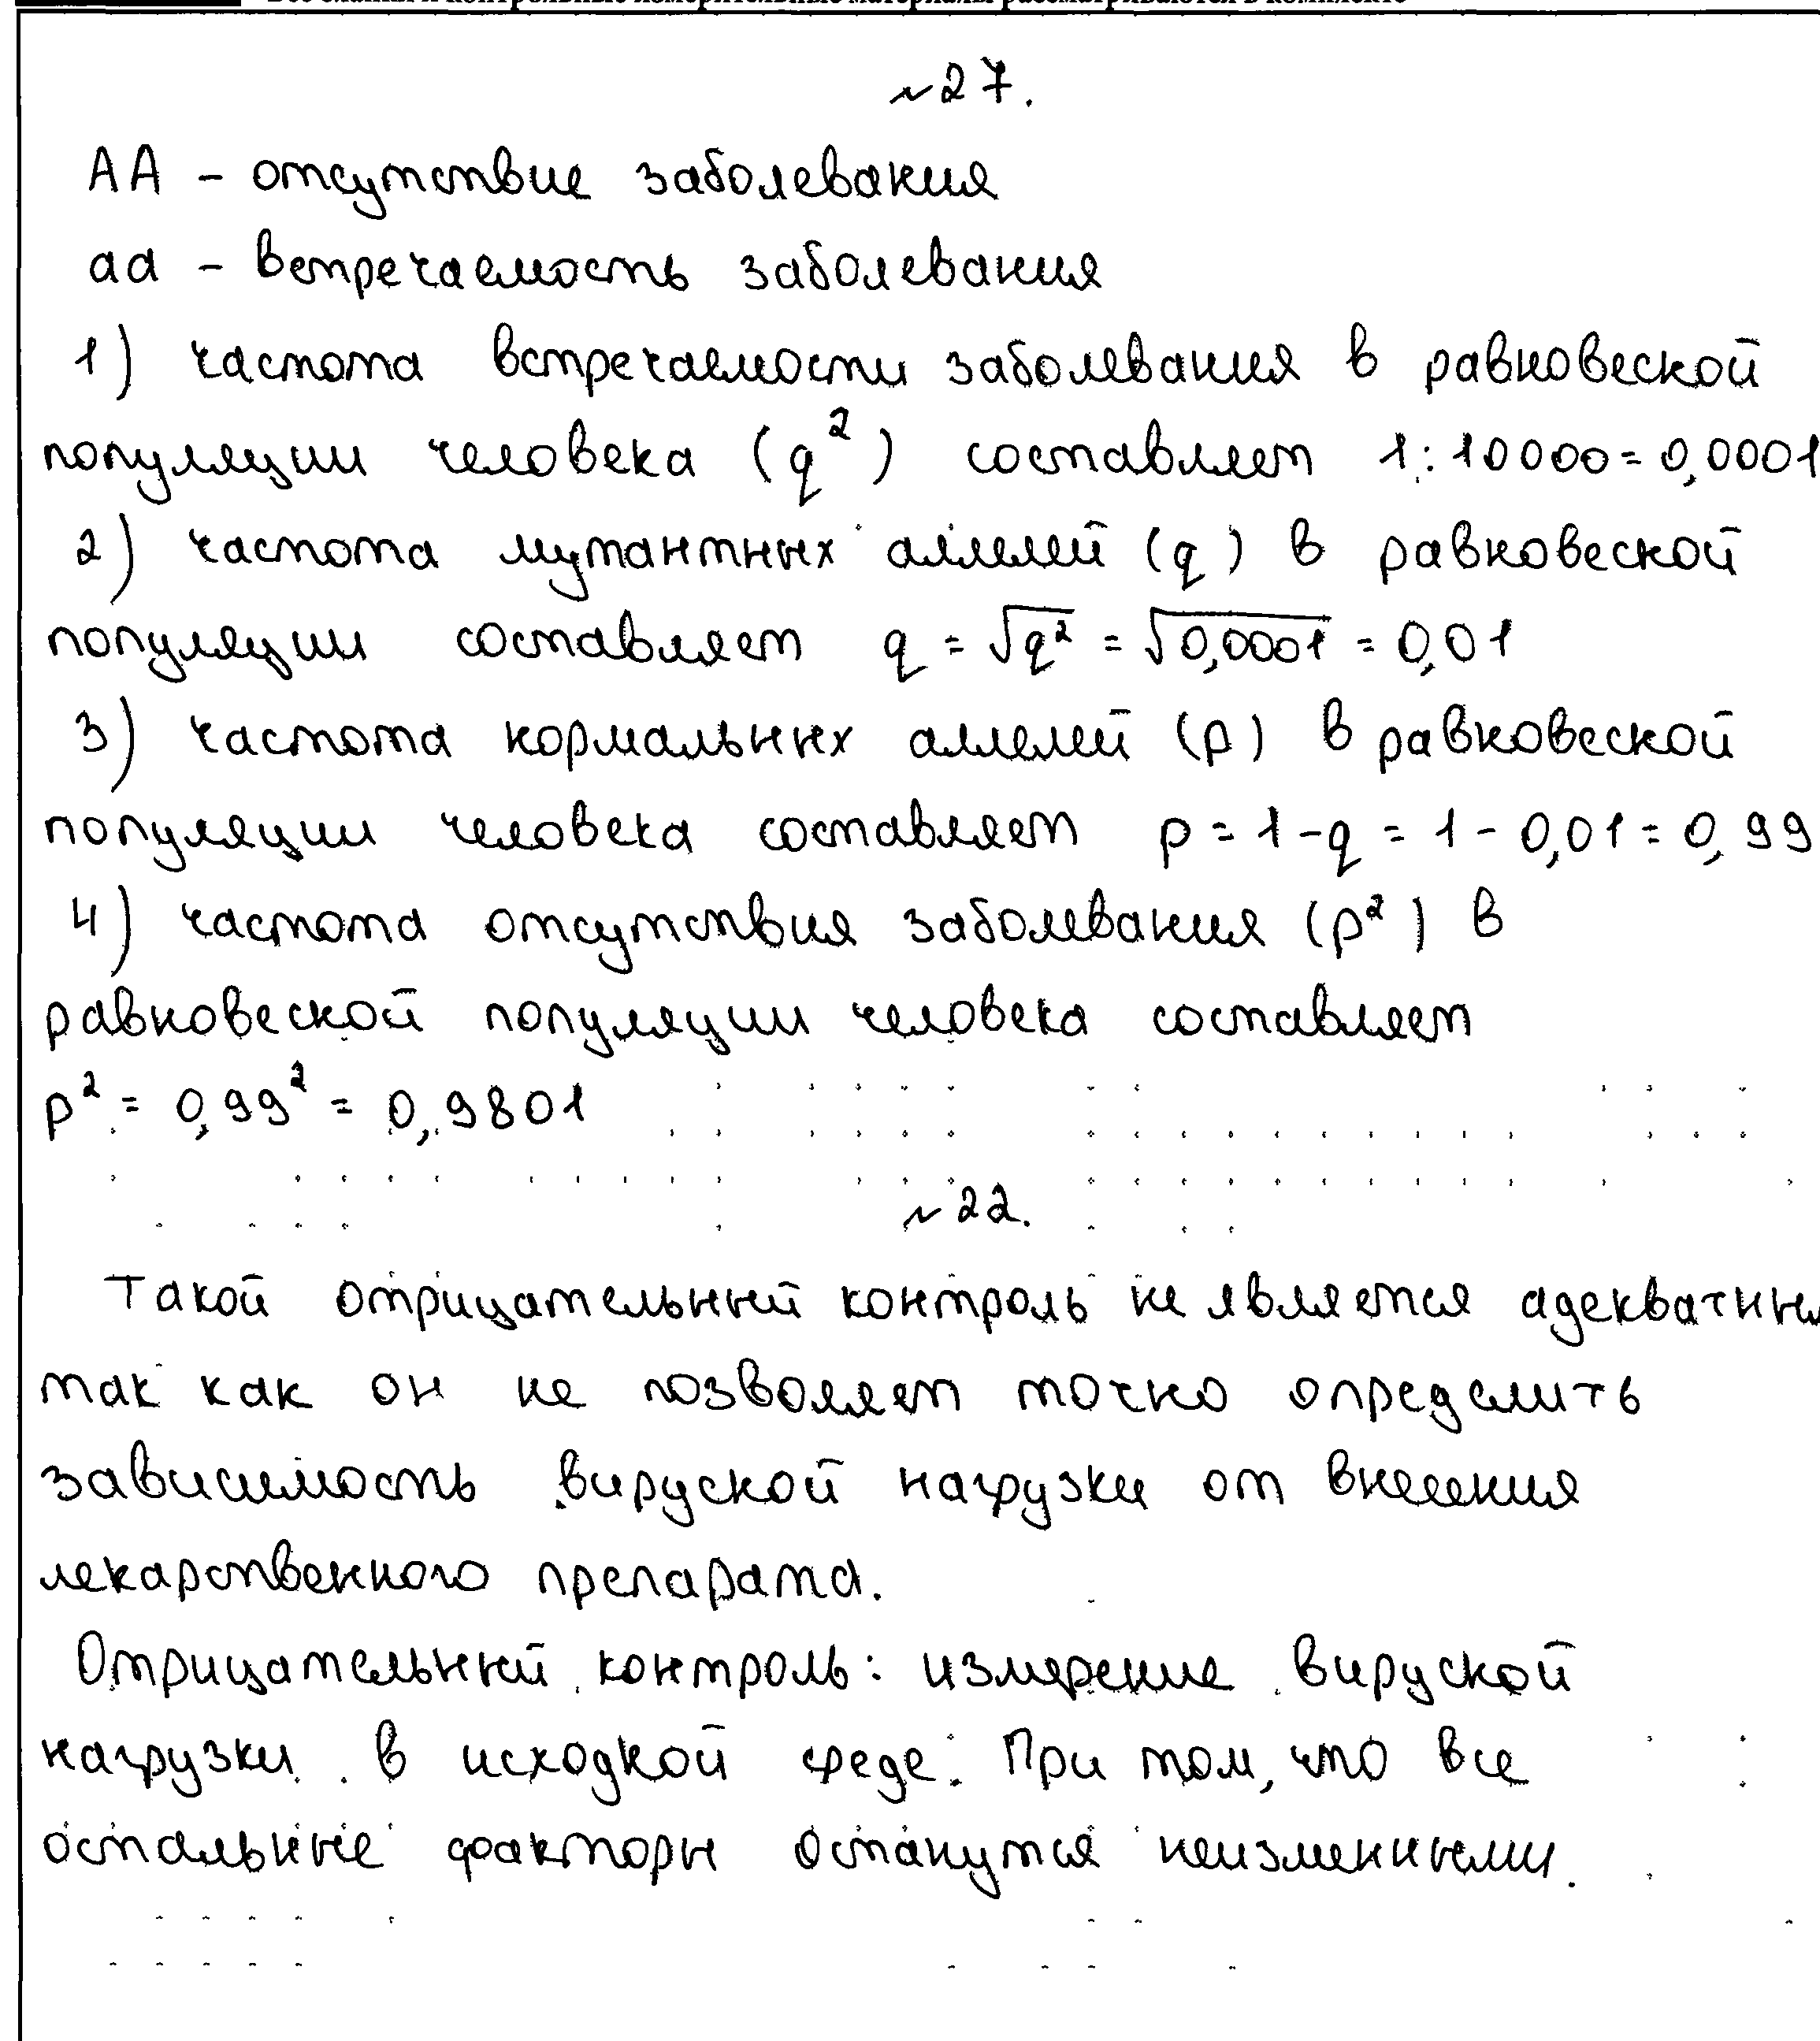 Все бланки и контрольные измерительные материалы рассматриваются в комплекте
№27.
АА - отсутствие заболевания
аа - встречаемость заболевания
1) частота встречаемости заболевания в равновеской
популяции человека (q²) составляет 1:10000=0,0001
2) частота мутантных аллелей (q) в равновеской
популяции составляет q = √q² = √0,0001 = 0,01
3) частота нормальных аллелей (p) в равновеской
популяции человека составляет p = 1-q = 1-0,01 = 0,99
4) частота отсутствия заболевания (p²) в
равновеской популяции человека составляет
p² = 0,99² = 0,9801
№22.
Такой отрицательный контроль не является адекватным
так как он не позволяет точно определить
зависимость вируской нагрузки от внесения
лекарственного препарата.
Отрицательный контроль: измерение вируской
нагрузки в исходной среде. При том, что все
остальные факторы останутся неизменными.